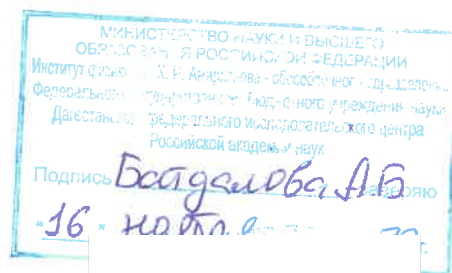 МИНИСТЕРСТВО НАУКИ И ВЫСШЕГО
ОБРАЗОВАНИЯ РОССИЙСКОЙ ФЕДЕРАЦИИ
Институт физики Х. И. Амирханова - обособленное подразделение
Федерального государственного бюджетного учреждения науки
Дагестанского федерального исследовательского центра
Российской академии наук
Подпись Батдалова А.Б. заверяю
"16" ноя г.